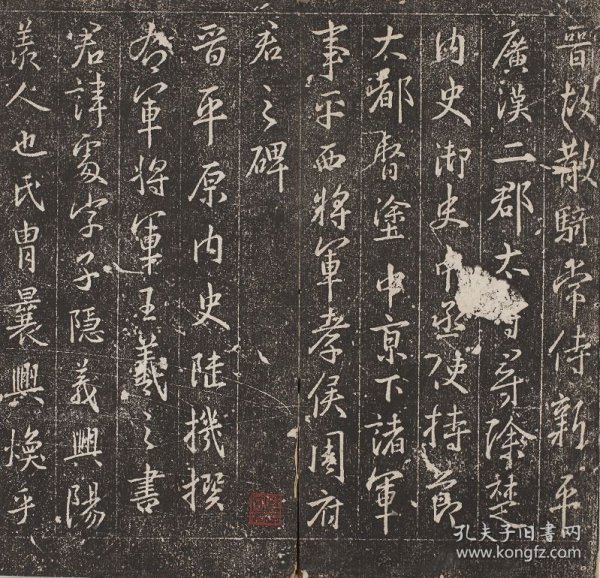 晉故散騎常侍新平
廣漢二郡太守尋除楚
內史御史中丞使持節
大都督塗中京下諸軍
事平西將軍孝侯周府
君之碑
晉平原內史陸機撰
右軍將軍王羲之書
君諱處字子隱義興陽
羨人也氏胄曩興煥乎
孔夫子旧书网
www.kongfz.com